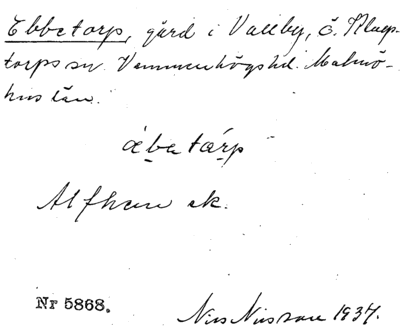 Ebbetorp, gård i Vallby, Ö. Klags-
torps sn. Vemmenhögs hd. Malmö-
hus län.
æ̀bɐtárp
Alfhem ek.
Nr 5868.
Nils Nilsson 1937.